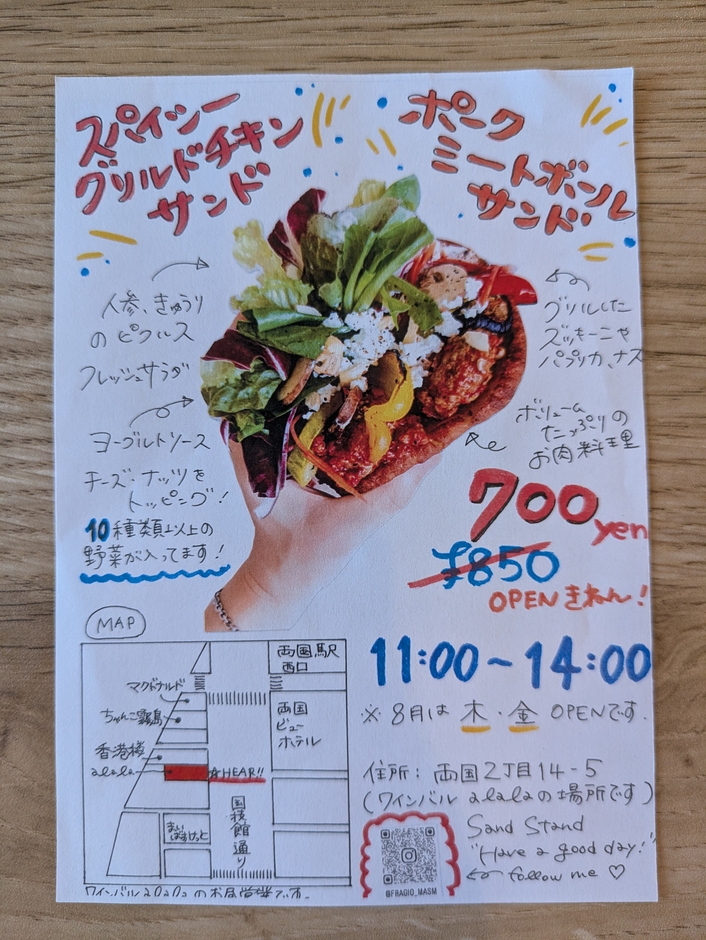 スパイシー
グリルドチキン
サンド
ポーク
ミートボール
サンド
人参、きゅうり
のピクルス
フレッシュサラダ
ヨーグルトソース
チーズ・ナッツを
トッピング!
10種類以上の
野菜が入ってます!
グリルした
ズッキーニや
パプリカ、ナス
ボリューム
たっぷりの
お肉料理
700yen
¥850
OPENきねん!
11:00~14:00
※8月は木・金OPENです.
MAP
両国駅
西口
マクドナルド
ちゃんこ霧島
両国
ビュー
ホテル
香港楼
alala
☆HEAR!!
国技館通り
まいばすけっと
ワインバルalalaのお昼営業です.
住所:両国2丁目14-5
(ワインバルalalaの場所です)
Sand Stand
"Have a good day!"
follow me ♡
@FRAGIO_MASM